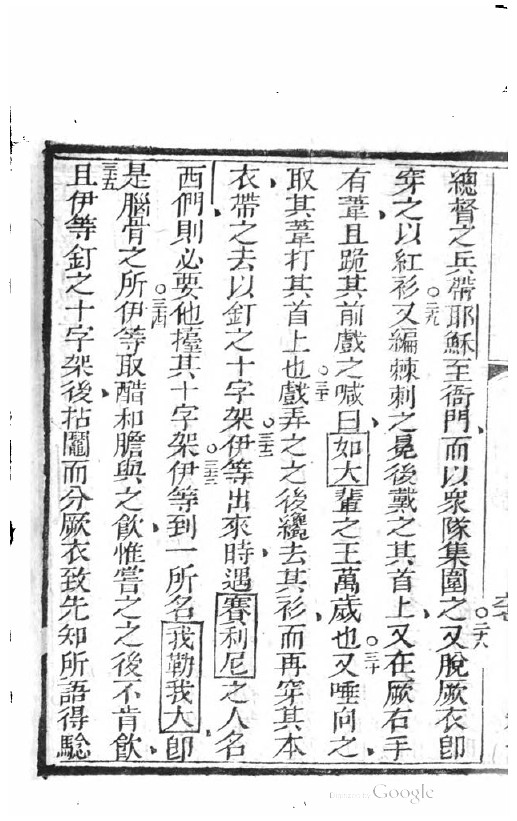 總督之兵帶耶穌至衙門、而以眾隊集圍之○二八又脫厥衣即
穿之以紅衫○二九又編棘刺之冕後戴之其首上、又在厥右手
有葦、且跪其前戲之喊曰、如大輩之王萬歲也○三十又唾向之、
取其葦打其首上也○三一戲弄之之後纔去其衫、而再穿其本
衣、帶之去以釘之十字架○三二伊等出來時、遇賽利尼之人名
西們則必要他擡其十字架○三三伊等到一所名我勒我大即
是腦骨之所○三四伊等取醋和膽與之飲、惟嘗之之後不肯飲、
三五且伊等釘之十字架後、拈鬮而分厥衣致先知所語得騐
Digitized by Google